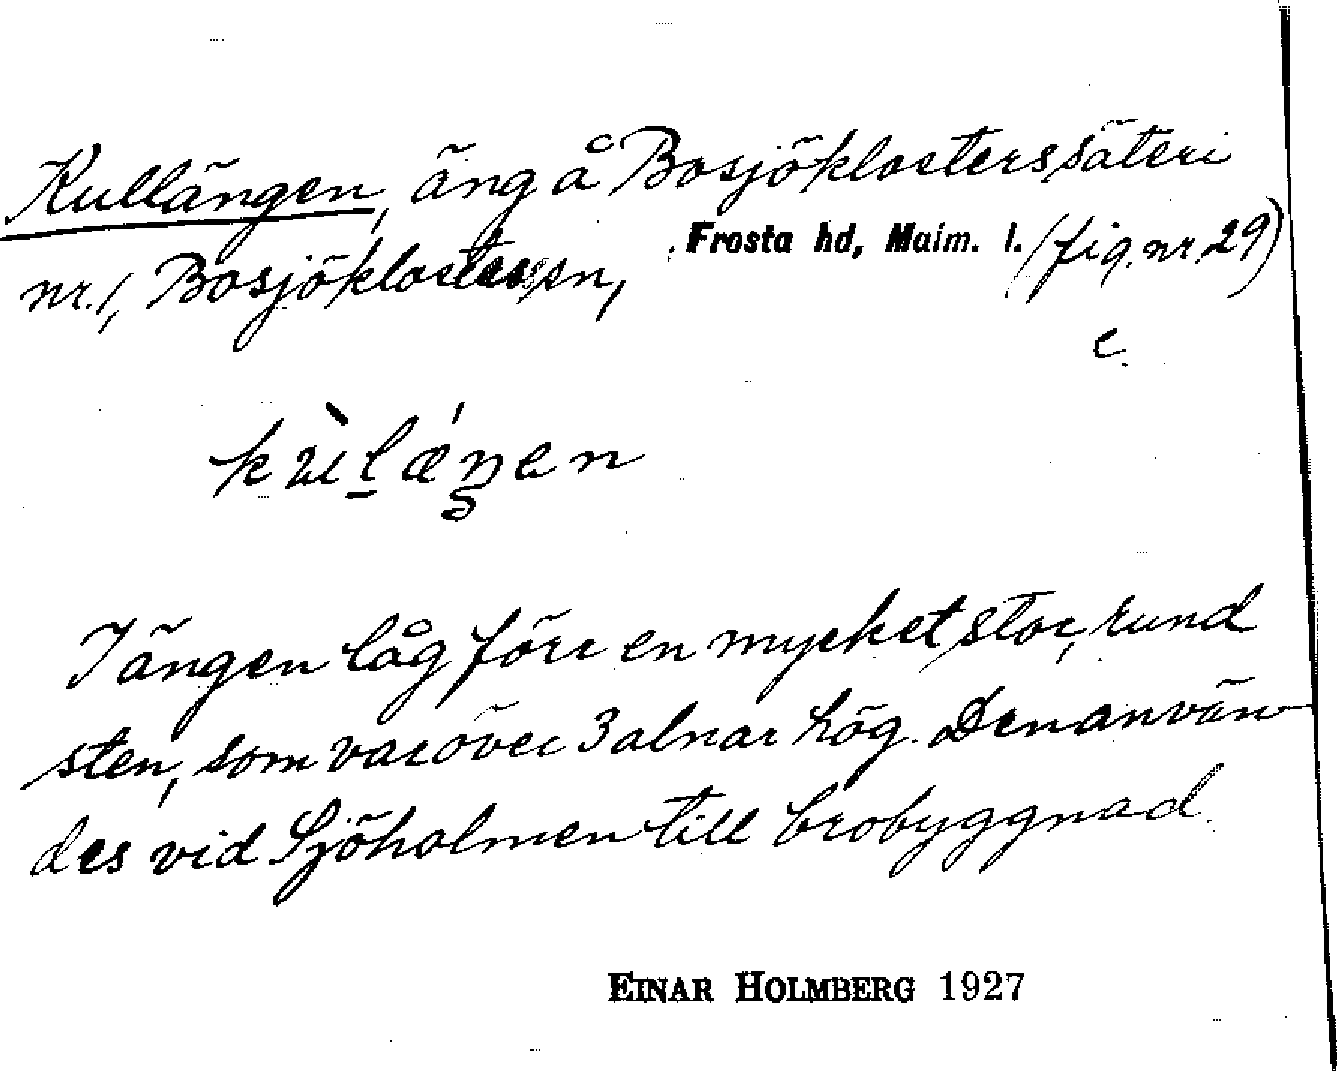 Kullängen, äng å Bosjöklosters säteri
nr. 1, Bosjöklosters sn, Frosta hd, Malm. l. (fig. nr 29)
c.
I ängen låg förr en mycket stor, rund
sten, som var över 3 alnar hög. Den använ-
des vid Sjöholmen till brobyggnad.
EINAR HOLMBERG 1927